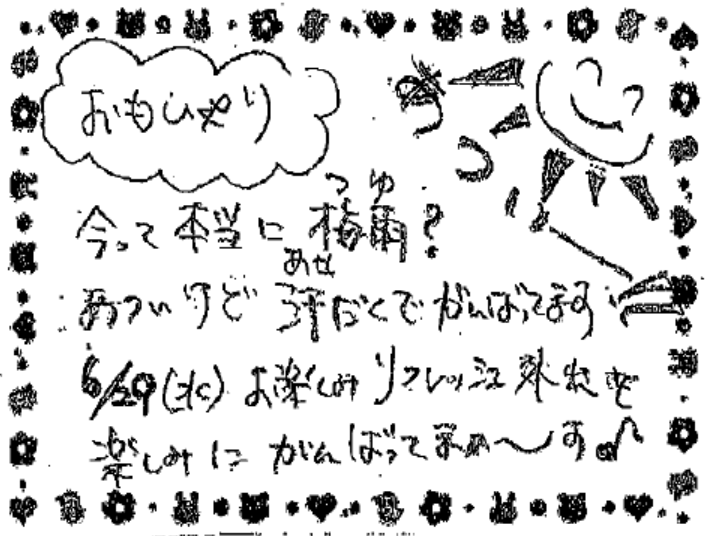 おもひやり
つゆ
今って 本当に 梅雨?
あせ
あついけど 汗だくで がんばってます
6/29(水) お楽しみ リフレッシュ外出を
楽しみに がんばってまぁ〜す♪